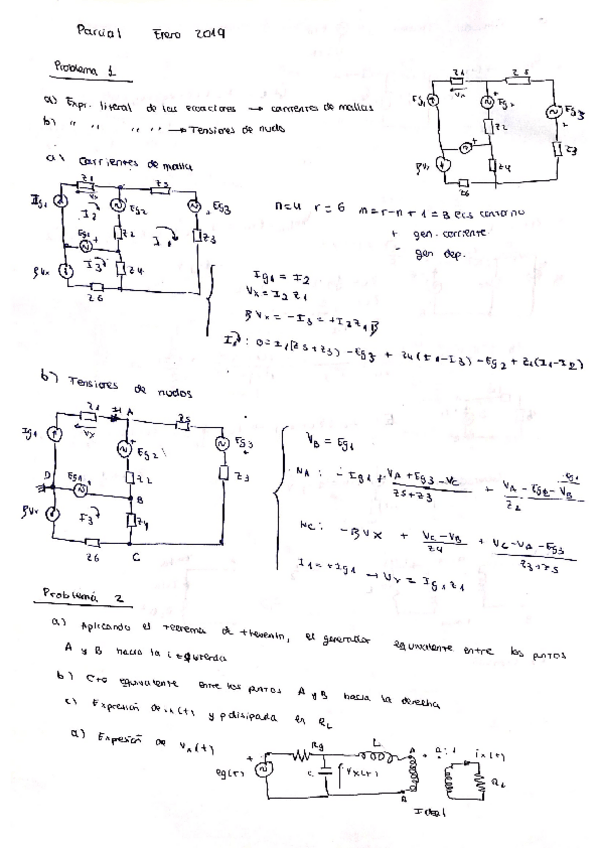 Parcial Enero 2019
Problema 1
a) Expr. literal de las ecuaciones → corrientes de mallas
b) " " " " → Tensiones de nudo
Z1 Z5
Vx
Eg1 Eg2 Eg3
Z2
Z3
βVx Z4
Z6
a) Corrientes de malla
Z1 Z5
Ig1 Eg2 Eg3
I2 Z2 Z3
Eg1
βVx I3 Z4
Z6
n=4 r=6 m=r-n+1=3 ecs contorno
+ gen. corriente
- gen dep.
Ig1 = I2
Vx = I2 Z1
βVx = -I3 = +I2 Z1 β
: 0 = I1(Z5+Z3) - Eg3 + Z4(I1-I3) - Eg2 + Z2(I1-I2)
b) Tensiones de nudos
Z1 I1 A Z5
Ig1 Vx Eg2 Eg3
Z2 Z3
D Eg1 B
βVx I3 Z4
Z6 C
VB = Eg1
NA: -Ig1 + VA+Eg3-VC / Z5+Z3 + VA-Eg2-VB / Z2
Eg1
NC: -βVx + VC-VB / Z4 + VC-VA-Eg3 / Z3+Z5
I1 = +Ig1 → Vx = Ig1 Z1
Problema 2
a) Aplicando el teorema de thevenin, el generador equivalente entre los puntos
A y B hacia la izquierda
b) Cto equivalente entre los puntos A y B hacia la derecha
c) Expresión de ix(t) y p disipada en RL
d) Expresión de vx(t)
+ Rg L A + a:1 ix(t)
eg(t) C Vx(t) RL
B
Ideal